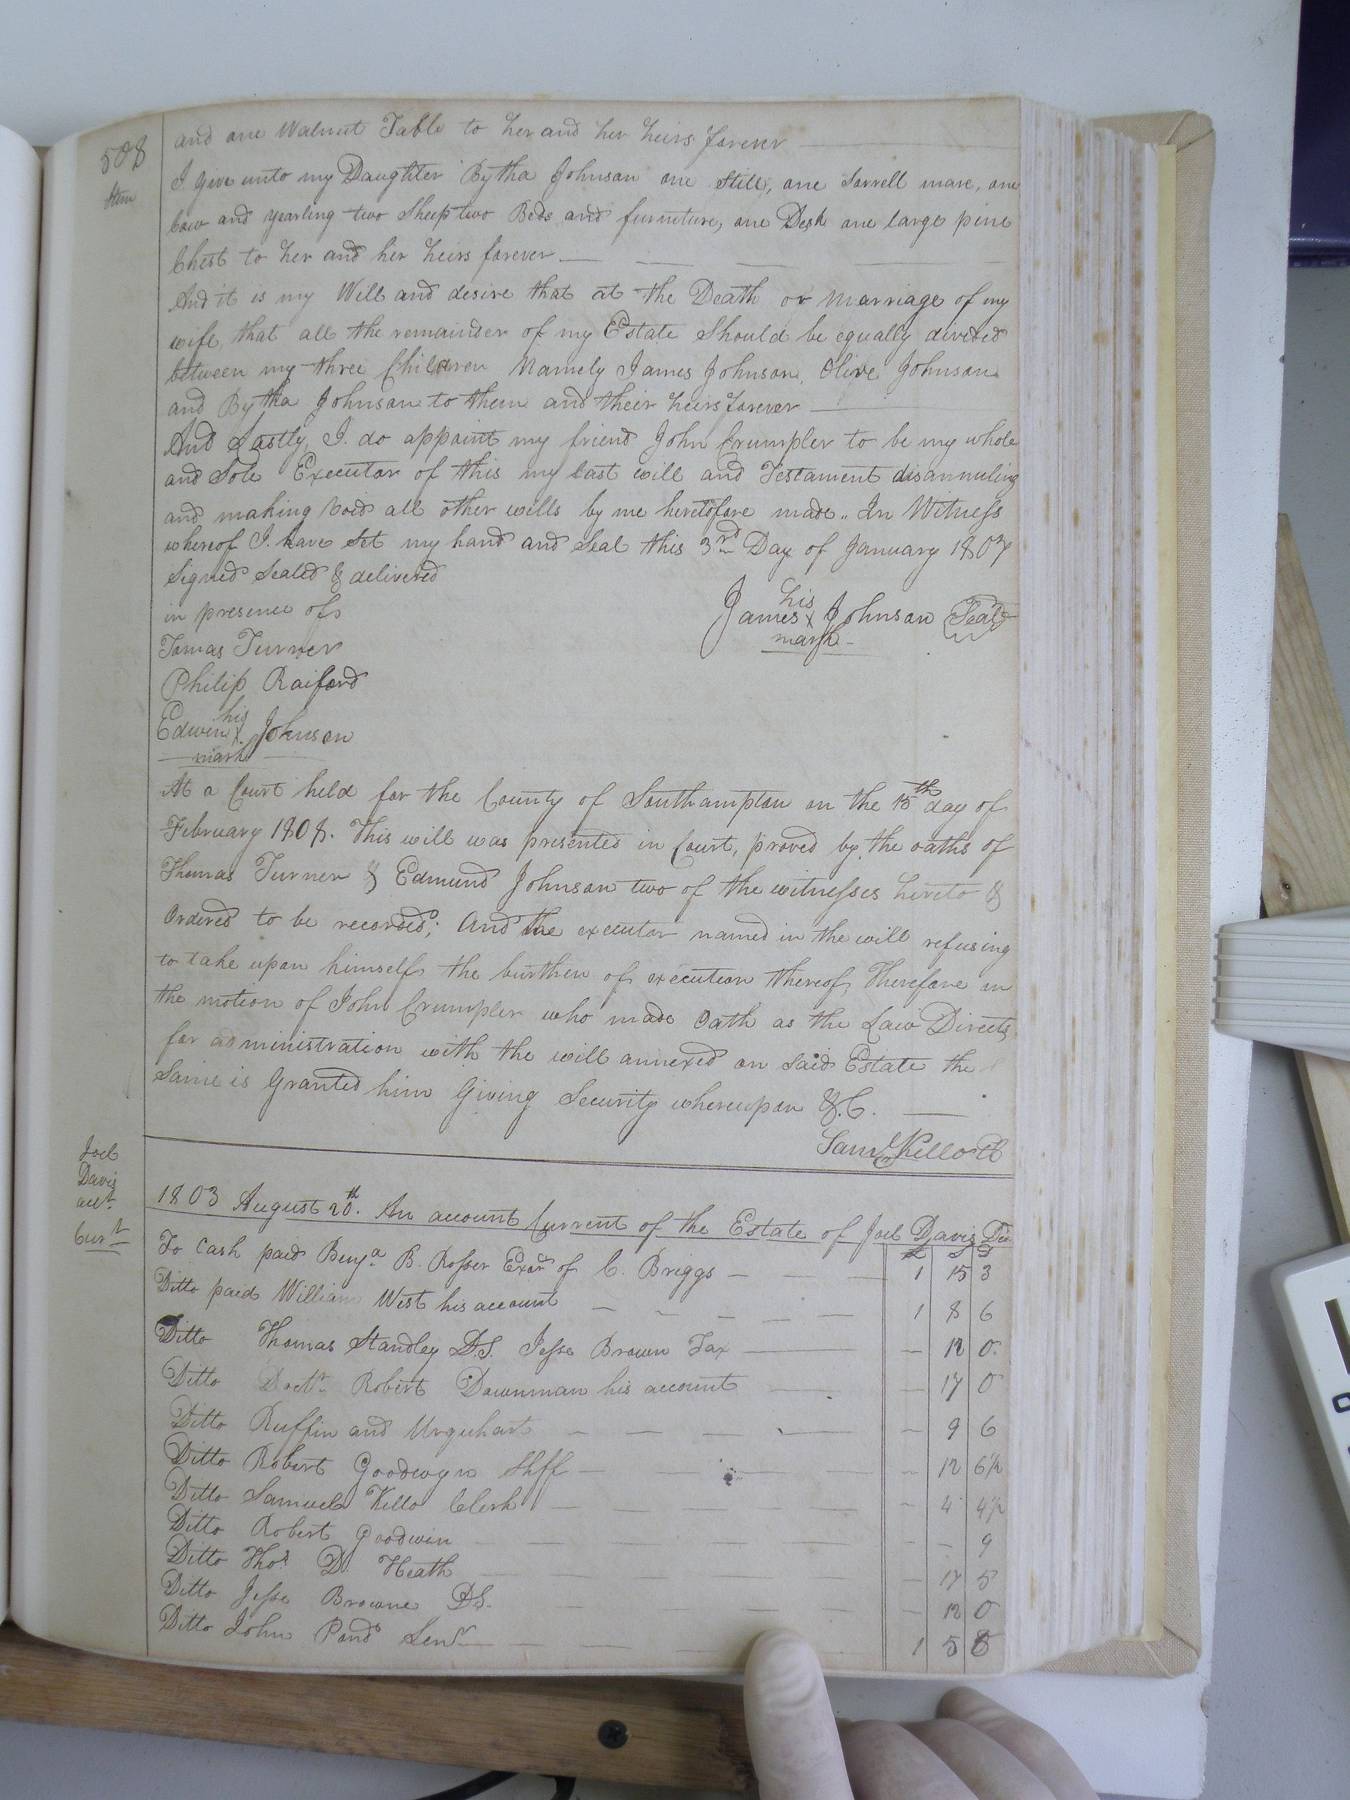 508
and one Walnut Table to her and her heirs forever
Item
I give unto my Daughter Bytha Johnson one Still, one Sorrell mare, one
Cow and yearling two Sheep two Beds and furniture, one Desk one large pine
Chest to her and her heirs forever
And it is my Will and desire that at the Death or marriage of my
wife that all the remainder of my Estate Should be equally divided
between my three Children Namely James Johnson, Olive Johnson
and Bytha Johnson to them and their heirs forever
And Lastly, I do appoint my friend John Crumpler to be my whole
and Sole Executor of this my last will and Testament disannuling
and making void all other wills by me heretofore made.. In Witness
whereof I have Set my hand and Seal this 3rd Day of January 1807
Signed Sealed & delivered
in presence of
James his x mark Johnson Seal
Tomas Turner
Philip Raiford
Edwin his x mark Johnson
At a Court held for the County of Southampton on the 15th day of
February 1808. This will was presented in Court, proved by the oaths of
Thomas Turner & Edmund Johnson two of the witnesses hereto &
Ordered to be recorded; And the executor named in the will refusing
to take upon himself the burthen of execution thereof, Therefore on
the motion of John Crumpler who made Oath as the Law Directs
for administration with the will annexed on Said Estate the
Same is Granted him Giving Security whereupon &.C.
Saml. Kello Ct
Joel
Davis
acct.
Curt.
1803 August 20th. An account Current of the Estate of Joel Davis
£ S D
To Cash paid Benja. B. Rosser Exor of C. Briggs — 1 15 3
Ditto paid William West his account — 1 8 6
Ditto Thomas Standley D.S. Jesse Brown Tax — 12 0.
Ditto Doctr. Robert Downman his account — 17 0
Ditto Ruffin and Urquhart — 9 6
Ditto Robert Goodwyn Shff — 12 6½
Ditto Samuel Kello Clerk — 4 4½
Ditto Robert Goodwin — 9
Ditto Thos. D. Heath — 17 5
Ditto Jesse Browne DS. — 12 0
Ditto John Pond Senr — 1 5 8